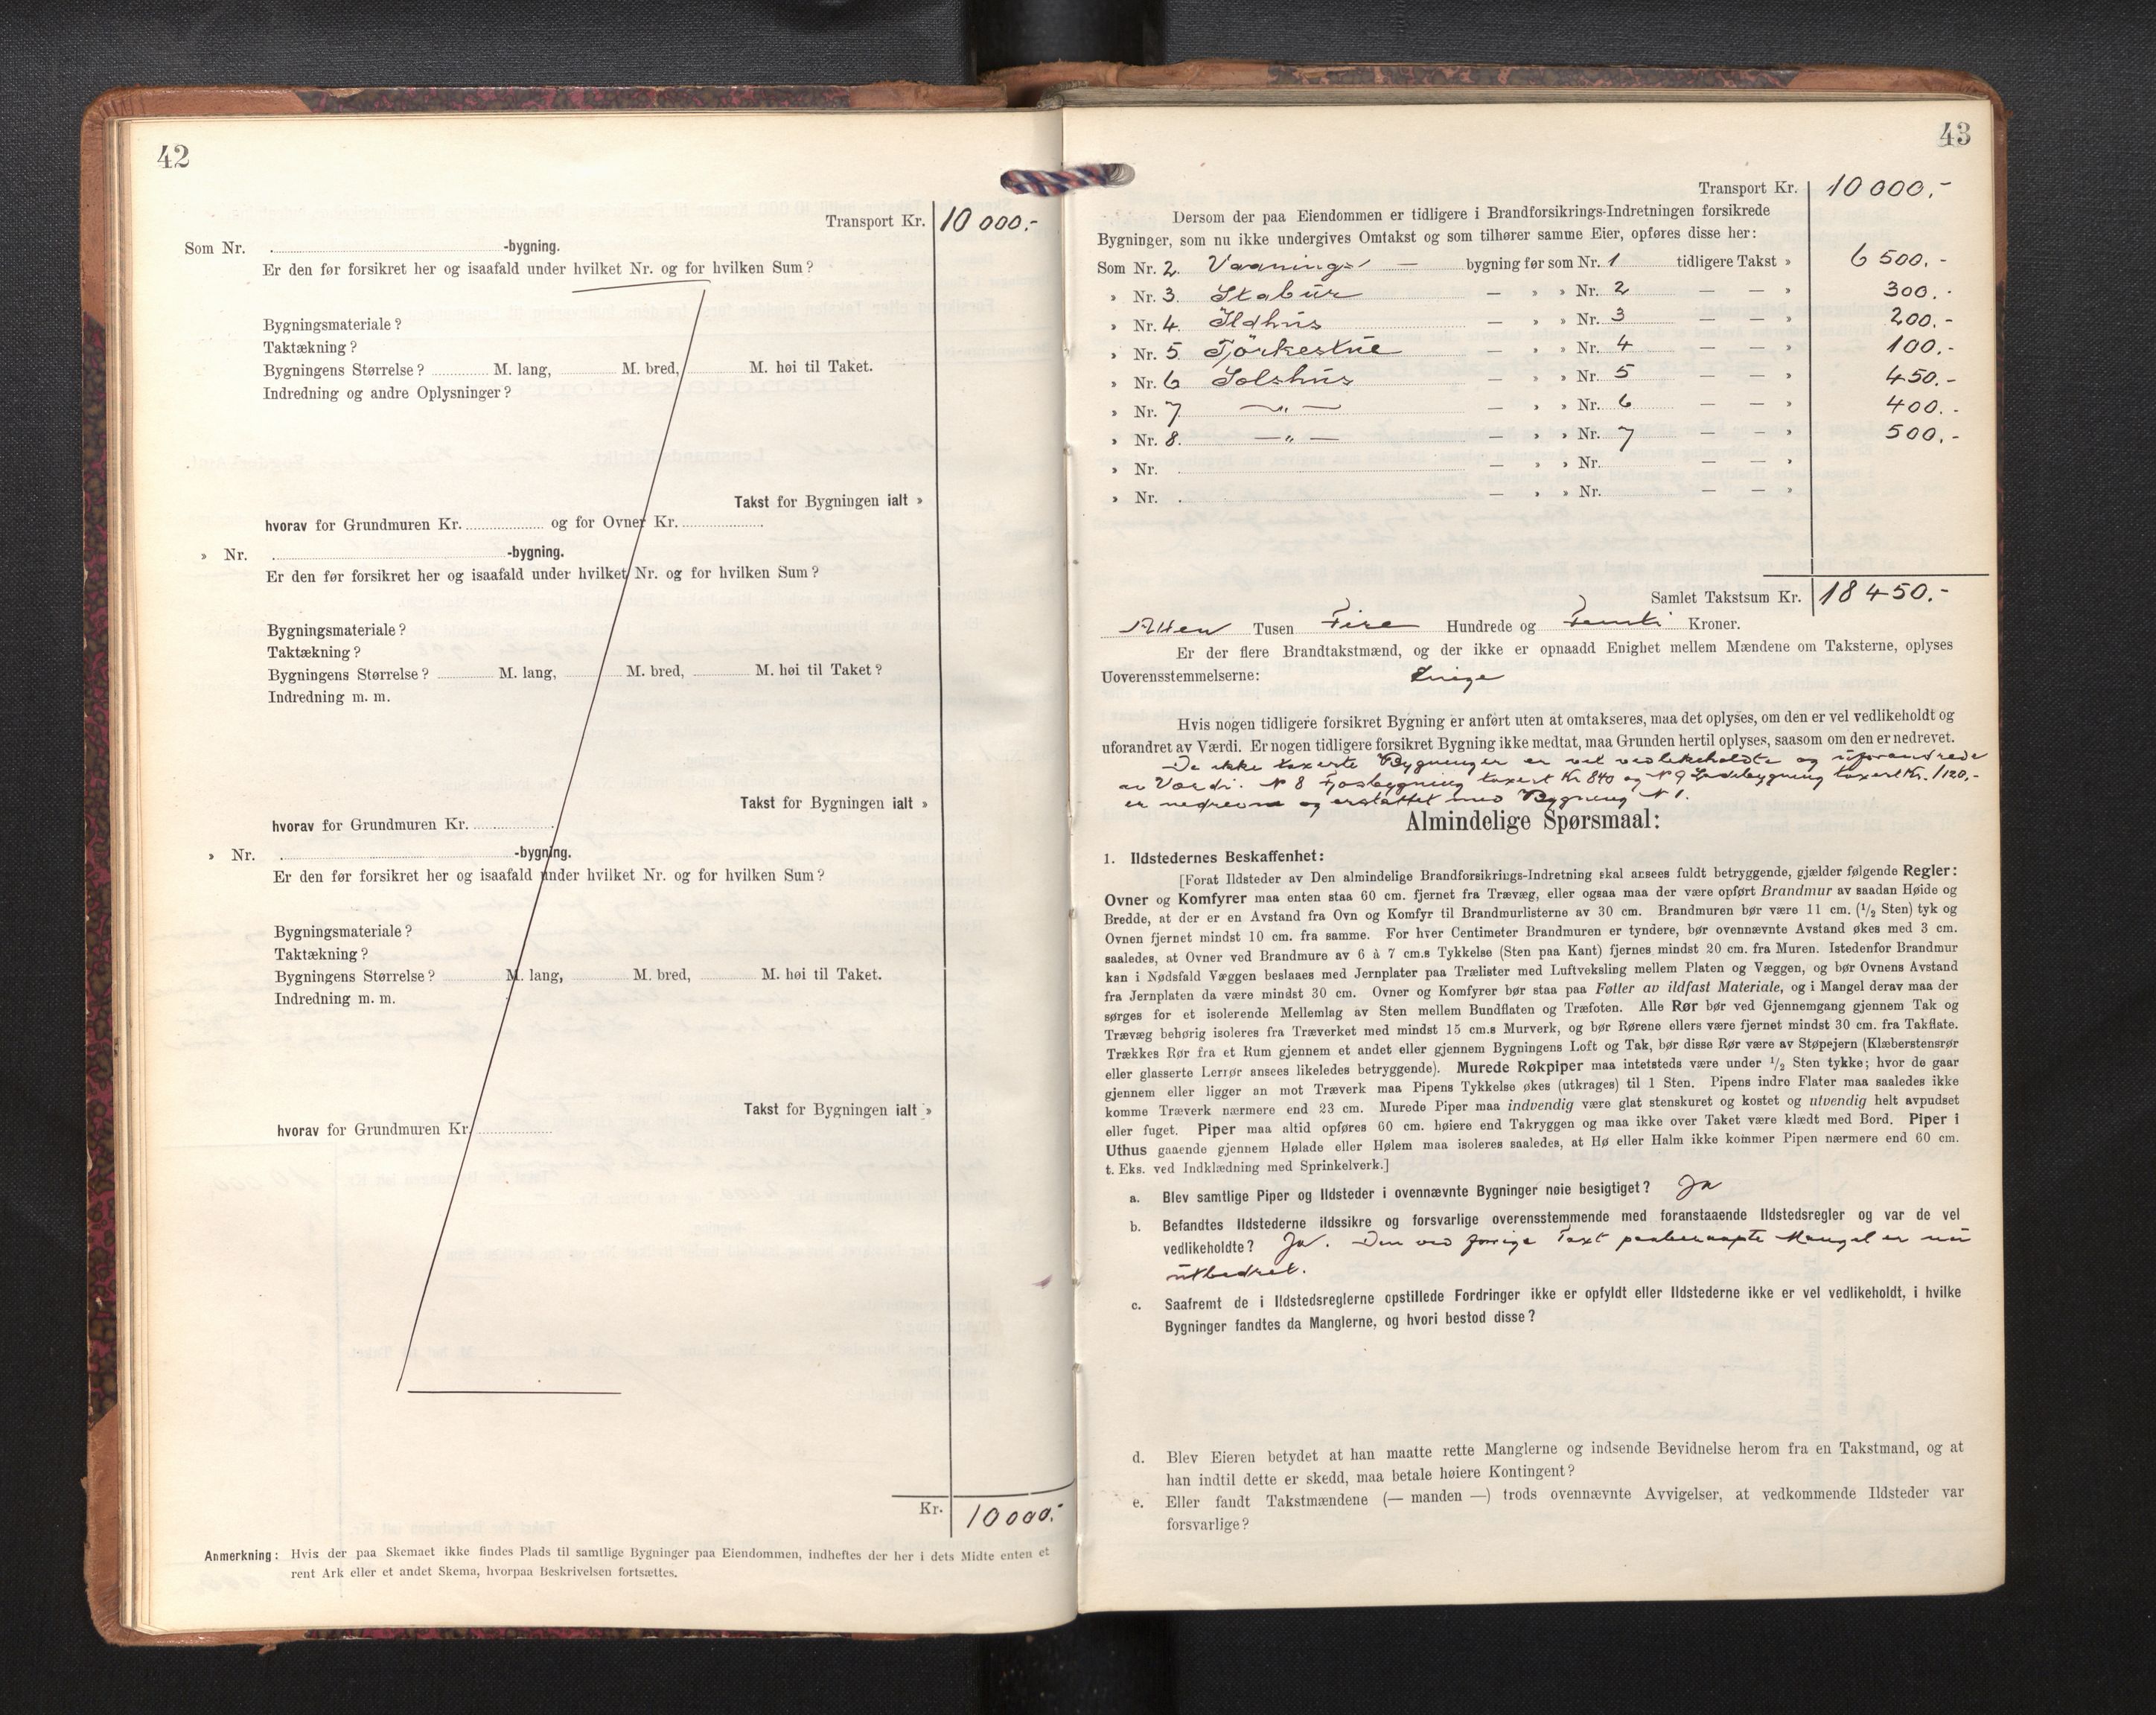 42
Transport Kr. 10 000.-
Som Nr. -bygning.
Er den før forsikret her og isaafald under hvilket Nr. og for hvilken Sum?
Bygningsmateriale?
Taktækning?
Bygningens Størrelse? M. lang, M. bred, M. høi til Taket.
Indredning og andre Oplysninger?
Takst for Bygningen ialt »
hvorav for Grundmuren Kr. og for Ovner Kr.
» Nr. -bygning.
Er den før forsikret her og isaafald under hvilket Nr. og for hvilken Sum?
Bygningsmateriale?
Taktækning?
Bygningens Størrelse? M. lang, M. bred, M. høi til Taket?
Indredning m. m.
Takst for Bygningen ialt »
hvorav for Grundmuren Kr.
» Nr. -bygning.
Er den før forsikret her og isaafald under hvilket Nr. og for hvilken Sum?
Bygningsmateriale?
Taktækning?
Bygningens Størrelse? M. lang, M. bred, M. høi til Taket.
Indredning m. m.
Takst for Bygningen ialt »
hvorav for Grundmuren Kr.
Kr. 10000.-
Anmerkning: Hvis der paa Skemaet ikke findes Plads til samtlige Bygninger paa Eiendommen, indheftes der her i dets Midte enten et
rent Ark eller et andet Skema, hvorpaa Beskrivelsen fortsættes.
43
Transport Kr. 10000.-
Dersom der paa Eiendommen er tidligere i Brandforsikrings-Indretningen forsikrede
Bygninger, som nu ikke undergives Omtakst og som tilhører samme Eier, opføres disse her:
Som Nr. 2. Vaanings- — bygning før som Nr. 1 tidligere Takst » 6 500.-
» Nr. 3. Stabur — » » Nr. 2 — — » 300.-
» Nr. 4. Ildhus — » » Nr. 3 — — » 200.-
» Nr. 5 Tørkestue — » » Nr. 4 — — » 100.-
» Nr. 6 Selshus — » » Nr. 5 — — » 450.-
» Nr. 7 —"— — » » Nr. 6 — — » 400.-
» Nr. 8. —"— — » » Nr. 7 — — » 500.-
» Nr. — » » Nr. — — »
» Nr. — » » Nr. — — »
Samlet Takstsum Kr. 18450.-
Atten Tusen Fire Hundrede og Femti Kroner.
Er der flere Brandtakstmænd, og der ikke er opnaadd Enighet mellem Mændene om Taksterne, oplyses
Uoverensstemmelserne: Enige
Hvis nogen tidligere forsikret Bygning er anført uten at omtakseres, maa det oplyses, om den er vel vedlikeholdt og
uforandret av Værdi. Er nogen tidligere forsikret Bygning ikke medtat, maa Grunden hertil oplyses, saasom om den er nedrevet.
De ikke taxerte Bygninger er vel vedlikeholdte og uforandrede
av Værdi. N 8 Fjøsbygning taxert Kr 840 og N 9 Ladebygning taxert Kr. 1120.-
er nedrevne og erstattet med Bygning N 1.
Almindelige Spørsmaal:
1. Ildstedernes Beskaffenhet:
[Forat Ildsteder av Den almindelige Brandforsikrings-Indretning skal ansees fuldt betryggende, gjælder følgende Regler:
Ovner og Komfyrer maa enten staa 60 cm. fjernet fra Trævæg, eller ogsaa maa der være opført Brandmur av saadan Høide og
Bredde, at der er en Avstand fra Ovn og Komfyr til Brandmurlisterne av 30 cm. Brandmuren bør være 11 cm. (1/2 Sten) tyk og
Ovnen fjernet mindst 10 cm. fra samme. For hver Centimeter Brandmuren er tyndere, bør ovennævnte Avstand økes med 3 cm.
saaledes, at Ovner ved Brandmure av 6 à 7 cm.s Tykkelse (Sten paa Kant) fjernes mindst 20 cm. fra Muren. Istedenfor Brandmur
kan i Nødsfald Væggen beslaaes med Jernplater paa Trælister med Luftveksling mellem Platen og Væggen, og bør Ovnens Avstand
fra Jernplaten da være mindst 30 cm. Ovner og Komfyrer bør staa paa Føtter av ildfast Materiale, og i Mangel derav maa der
sørges for et isolerende Mellemlag av Sten mellem Bundflaten og Træfoten. Alle Rør bør ved Gjennemgang gjennem Tak og
Trævæg behørig isoleres fra Træverket med mindst 15 cm.s Murverk, og bør Rørene ellers være fjernet mindst 30 cm. fra Takflate.
Trækkes Rør fra et Rum gjennem et andet eller gjennem Bygningens Loft og Tak, bør disse Rør være av Støpejern (Klæberstensrør
eller glasserte Lerrør ansees likeledes betryggende). Murede Røkpiper maa intetsteds være under 1/2 Sten tykke; hvor de gaar
gjennem eller ligger an mot Træverk maa Pipens Tykkelse økes (utkrages) til 1 Sten. Pipens indre Flater maa saaledes ikke
komme Træverk nærmere end 23 cm. Murede Piper maa indvendig være glat stenskuret og kostet og utvendig helt avpudset
eller fuget. Piper maa altid opføres 60 cm. høiere end Takryggen og maa ikke over Taket være klædt med Bord. Piper i
Uthus gaaende gjennem Hølade eller Hølem maa isoleres saaledes, at Hø eller Halm ikke kommer Pipen nærmere end 60 cm.
t. Eks. ved Indklædning med Sprinkelverk.]
a. Blev samtlige Piper og Ildsteder i ovennævnte Bygninger nøie besigtiget? Ja
b. Befandtes Ildstederne ildssikre og forsvarlige overensstemmende med foranstaaende Ildstedsregler og var de vel
vedlikeholdte? Ja. Den ved forrige Taxt paaberaapte Mangel er nu
utbedret.
c. Saafremt de i Ildstedsreglerne opstillede Fordringer ikke er opfyldt eller Ildstederne ikke er vel vedlikeholdt, i hvilke
Bygninger fandtes da Manglerne, og hvori bestod disse?
d. Blev Eieren betydet at han maatte rette Manglerne og indsende Bevidnelse herom fra en Takstmand, og at
han indtil dette er skedd, maa betale høiere Kontingent?
e. Eller fandt Takstmændene (— manden —) trods ovennævnte Avvigelser, at vedkommende Ildsteder var
forsvarlige?